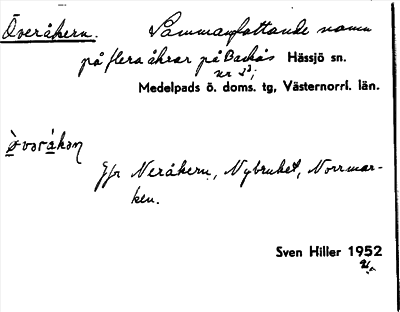 Överåkern. Sammanfattande namn
på flera åkrar på Backås Hässjö sn.
nr 13;
Medelpads ö. doms. tg, Västernorrl. län.
Jfr Neråkern, Nybruket, Norrmar-
ken.
Sven Hiller 1952